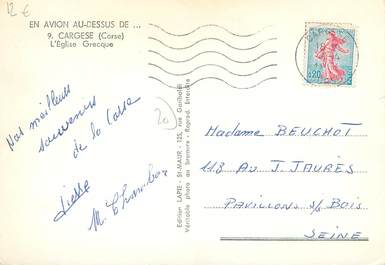 12 €
EN AVION AU-DESSUS DE ...
9. CARGESE (Corse)
L'Église Grecque
0,20
Nos meilleurs
souvenirs
de la Corse
20
Edition LAPIE - St-MAUR - 125, rue Garibaldi
Véritable photo au bromure - Reprod. Interdite
Madame BEUCHOT
118 Av J. JAURÈS
PAVILLONS s/s BOIS
SEINE